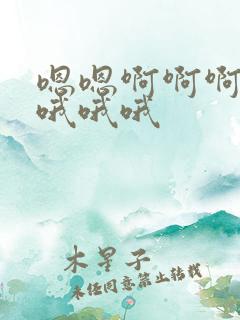 嗯嗯啊啊啊
哦哦哦
木星子
未经同意禁止转载